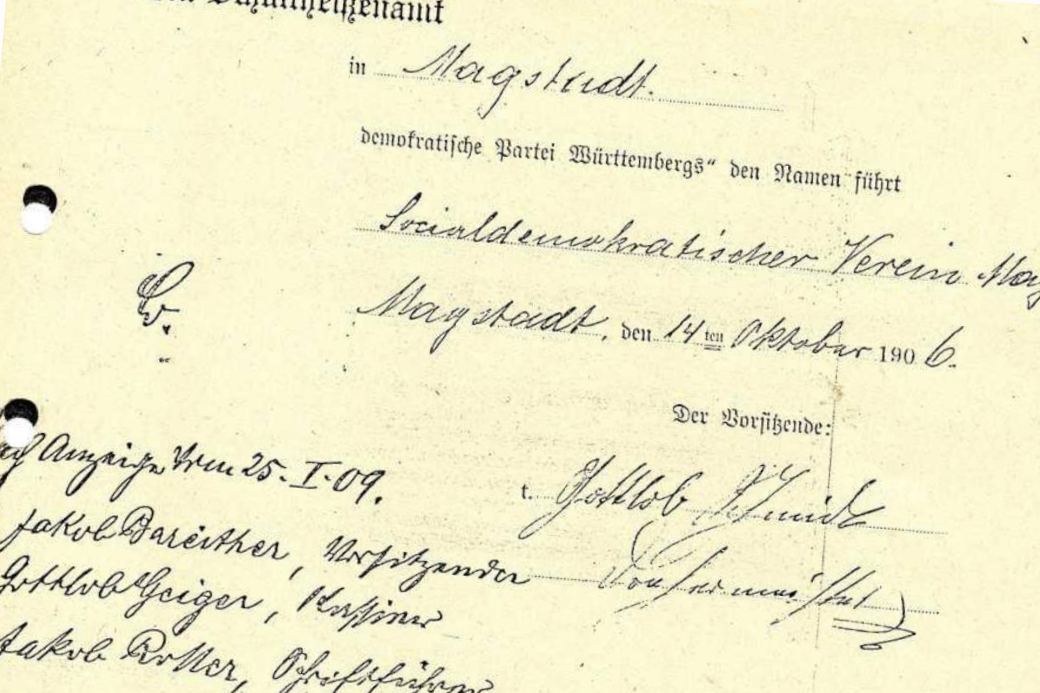 Schultheißenamt
in Magstadt.
demokratische Partei Württembergs“ den Namen führt
Socialdemokratischer Verein Mag
Magstadt, den 14ten Oktober 1906.
Der Vorsitzende:
t. Gottlob Schmidt
Anzeige vom 25. I. 09.
Jakob Bareither, Vorsitzender
Gottlob Geiger, Kassier
Jakob Rotter, Schriftführer